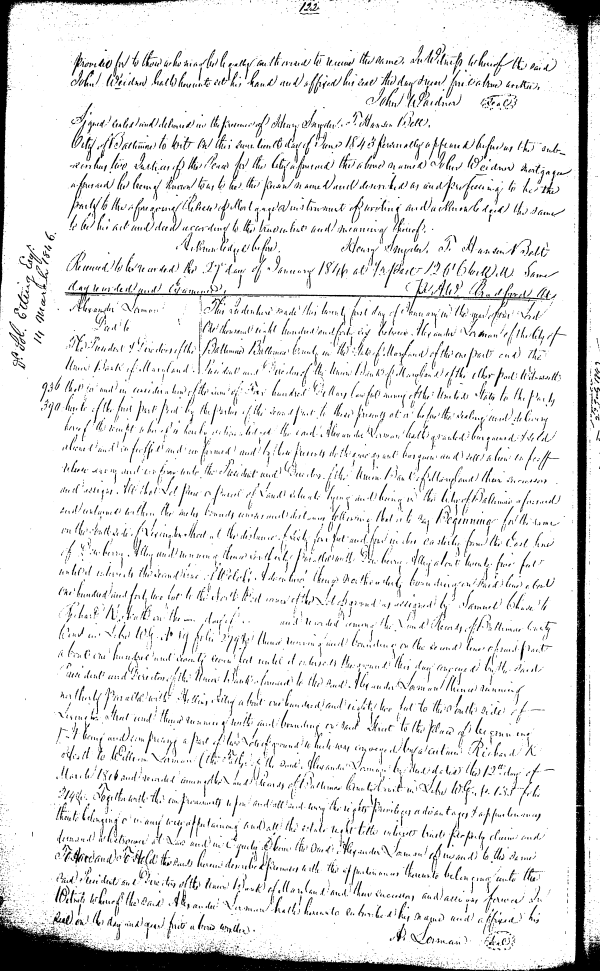 122
provided for to those who may be legally authorised to receive the same. In Witness whereof the said
John Weidner hath hereunto set his hand and affixed his seal the day & year first above written.
John Weidner (Seal)
Signed sealed and delivered in the presence of Henry Snyder. T. Hanson Belt.
City of Baltimore to wit On this seventeenth day of June 1843 personally appeared before us the sub-
scribers two Justices of the Peace for the City aforesaid the above named John Weidner mortgagee
aforesaid he being known to us to be the person named and described as and professing to be the
party to the aforegoing Release of Mortgage or instrument of writing and acknowledged the same
to be his act and deed according to the true intent and meaning thereof.
Acknowledged before. Henry Snyder. T. Hanson Belt
Received to be recorded the 27 day of January 1846 at past 12 O'Clock M. Same
day recorded and Examined.
Alexander Lorman
Deed to
The President & Directors of the
Union Bank of Maryland
This Indenture made this twenty first day of January in the year of our Lord
One thousand eight hundred and forty six between Alexander Lorman of the City of
Baltimore Baltimore County in the State of Maryland of the one part and the
President and Directors of the Union Bank of Maryland of the other part Witnesseth
that for and in consideration of the sum of Five hundred Dollars lawful money of the United States to the party
hereto of the first part paid by the parties of the second part, to these presents at or before the sealing and delivery
hereof the receipt whereof is hereby acknowledged the said Alexander Lorman hath granted bargained & sold
aliened and enfeoffed and confirmed and by these presents doth give grant bargain and sell alien enfeoff
release convey and confirm unto the President and Directors of the Union Bank of Maryland their successors
and assigns All that Lot piece or parcel of Land situate lying and being in the City of Baltimore aforesaid
and contained within the metes bounds courses and distances following that is to say Beginning for the same
on the South side of Lexington Street at the distance of sixty feet and five inches easterly from the East line
of Dewberry Alley and running thence southerly Parallel with Dewberry Alley about twenty five feet
until it intersects the second line of thence northeasterly bounding on said line about
one hundred and forty two feet to the North West corner of the Lot of ground as assigned by Samuel Chase to
Richard K. Heath on the day of and recorded among the Land Records of Baltimore County
Court in Liber W.G. No folio thence reversing and bounding on the second line of said part
about one hundred and seventy seven feet until it intersects the ground this day conveyed by the said
President and Directors of the Union Bank aforesaid to the said Alexander Lorman thence running
northerly Parallel with Alley about one hundred and eighty two feet to the South side of
Lexington Street and thence running with and bounding on said Street to the Place of beginning
It being and comprising a part of two Lots of ground which was conveyed by a certain Richard K
Heath to William Lorman (the Father of the said Alexander Lorman) by deed dated the 13th day of
March 1816 and recorded among the Land Records of Baltimore County Court in Liber W.G. No 135 folio
Together with the improvements upon and all and every the rights privileges advantages & appurtenances
thereto belonging or in any wise appertaining and all the estate right title interest trust property claim and
demand whatsoever at Law and in Equity of him the said Alexander Lorman of in and to the same
To Have and To Hold the said herein described premises with the appurtenances thereunto belonging unto the
said President and Directors of the Union Bank of Maryland and their successors and assigns forever In
Witness whereof the said Alexander Lorman hath hereunto subscribed his name and affixed his
seal on the day and year first above written.
A. Lorman (Seal)
Etting Esq.
14 March 1846.
936
390